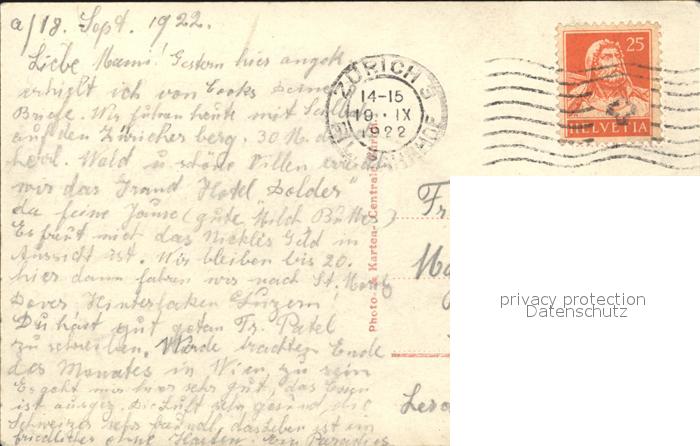 a/18. Sept. 1922.
Liebe Mami! Gestern hier angek.
erhielt ich von Cooks Deine
Briefe. Wir fuhren heute mit
auf den Züricher berg. 30 M.
herrl. Wald u schöne Villen
wir das Grand Hotel Dolder"
da feine Jause (gute Milch Butter)
Es freut mich das Nickles Geld in
Aussicht ist. Wir bleiben bis 20.
hier dann fahren wir nach St. Moritz
Davos Hinterlaken Luzern!
Du hast gut getan Fr. Patel
zu schreiben. Werde trachten Ende
des Monates in Wien zu sein
Es geht mir hier sehr gut, das Essen
ist ausgez. Die Luft sehr gesund, die
Schweizer sehr freundl, dasleben ist ein
friedliches ohne Ein Paradies
ZÜRICH
14-15
19. IX
1922
25
HELVETIA
Photo- u. Karten-Centrale Zürich
Fr
privacy protection
Datenschutz